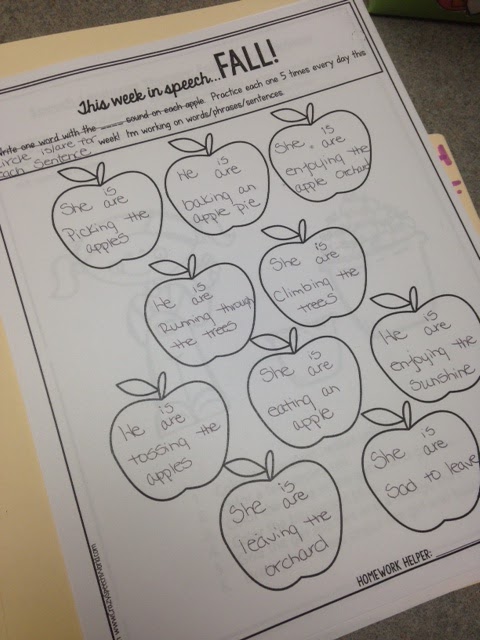 This week in speech...FALL!
Write one word with the ____ sound on each apple. Practice each one 5 times every day this
week! I'm working on words/phrases/sentences.
Circle is/are for
each sentence
She is
are
Picking the
apples
He is
are
baking an
apple pie
She is
are
enjoying the
apple orchard
He is
are
Running through
the trees
She is
are
Climbing the
trees
He is
are
enjoying the
Sunshine
He is
are
tossing the
apples
She is
are
eating an
apple
She is
are
Sad to leave
She is
are
leaving the
orchard
HOMEWORK HELPER: